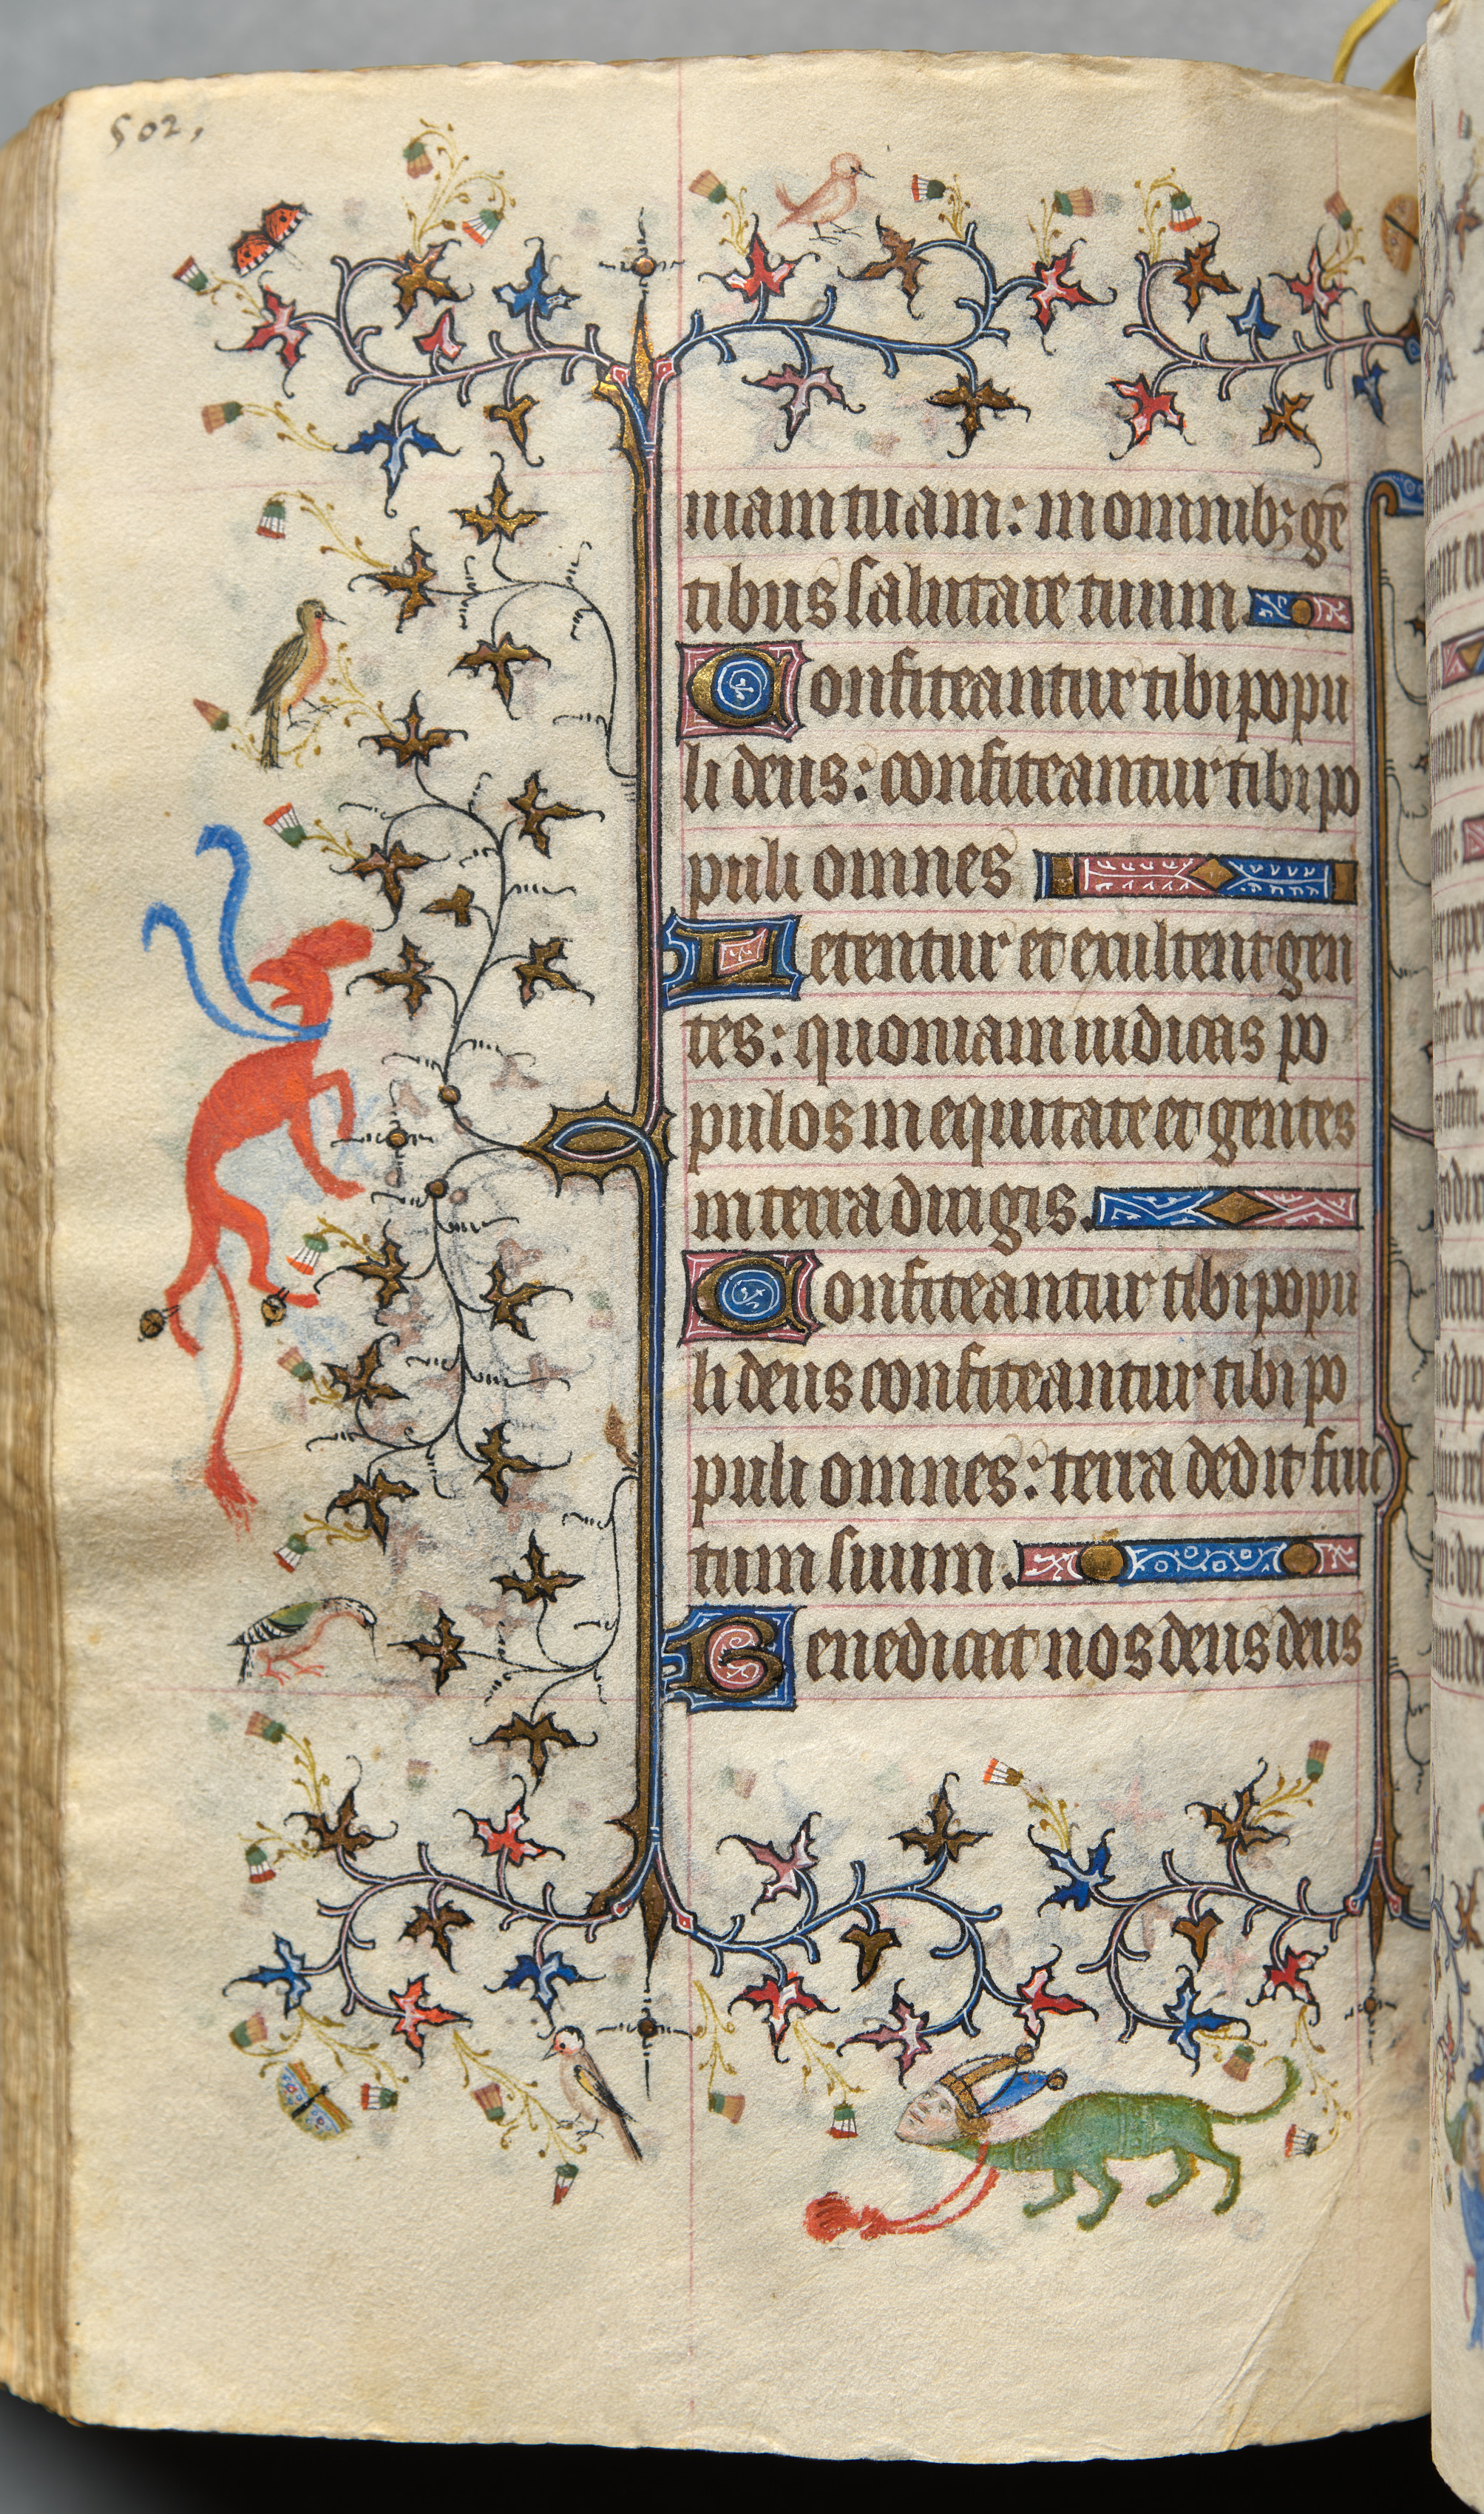 502,
uiam tuam: in omnibꝫ gē
tibus salutare tuum.
Confiteantur tibi popu
li deus: confiteantur tibi po
puli omnes
Letentur et exultent gen
tes: quoniam iudicas po
pulos in equitate et gentes
in terra dirigis.
Confiteantur tibi popu
li deus confiteantur tibi po
puli omnes: terra dedit fruc
tum suum.
Benedicat nos deus deus